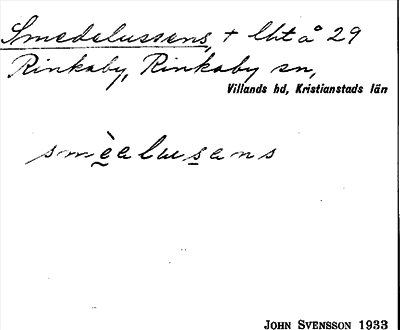 Smedelussens, + lht å 29
Rinkaby, Rinkaby sn,
Villands hd, Kristianstads län
smèa̤lusans
JOHN SVENSSON 1933